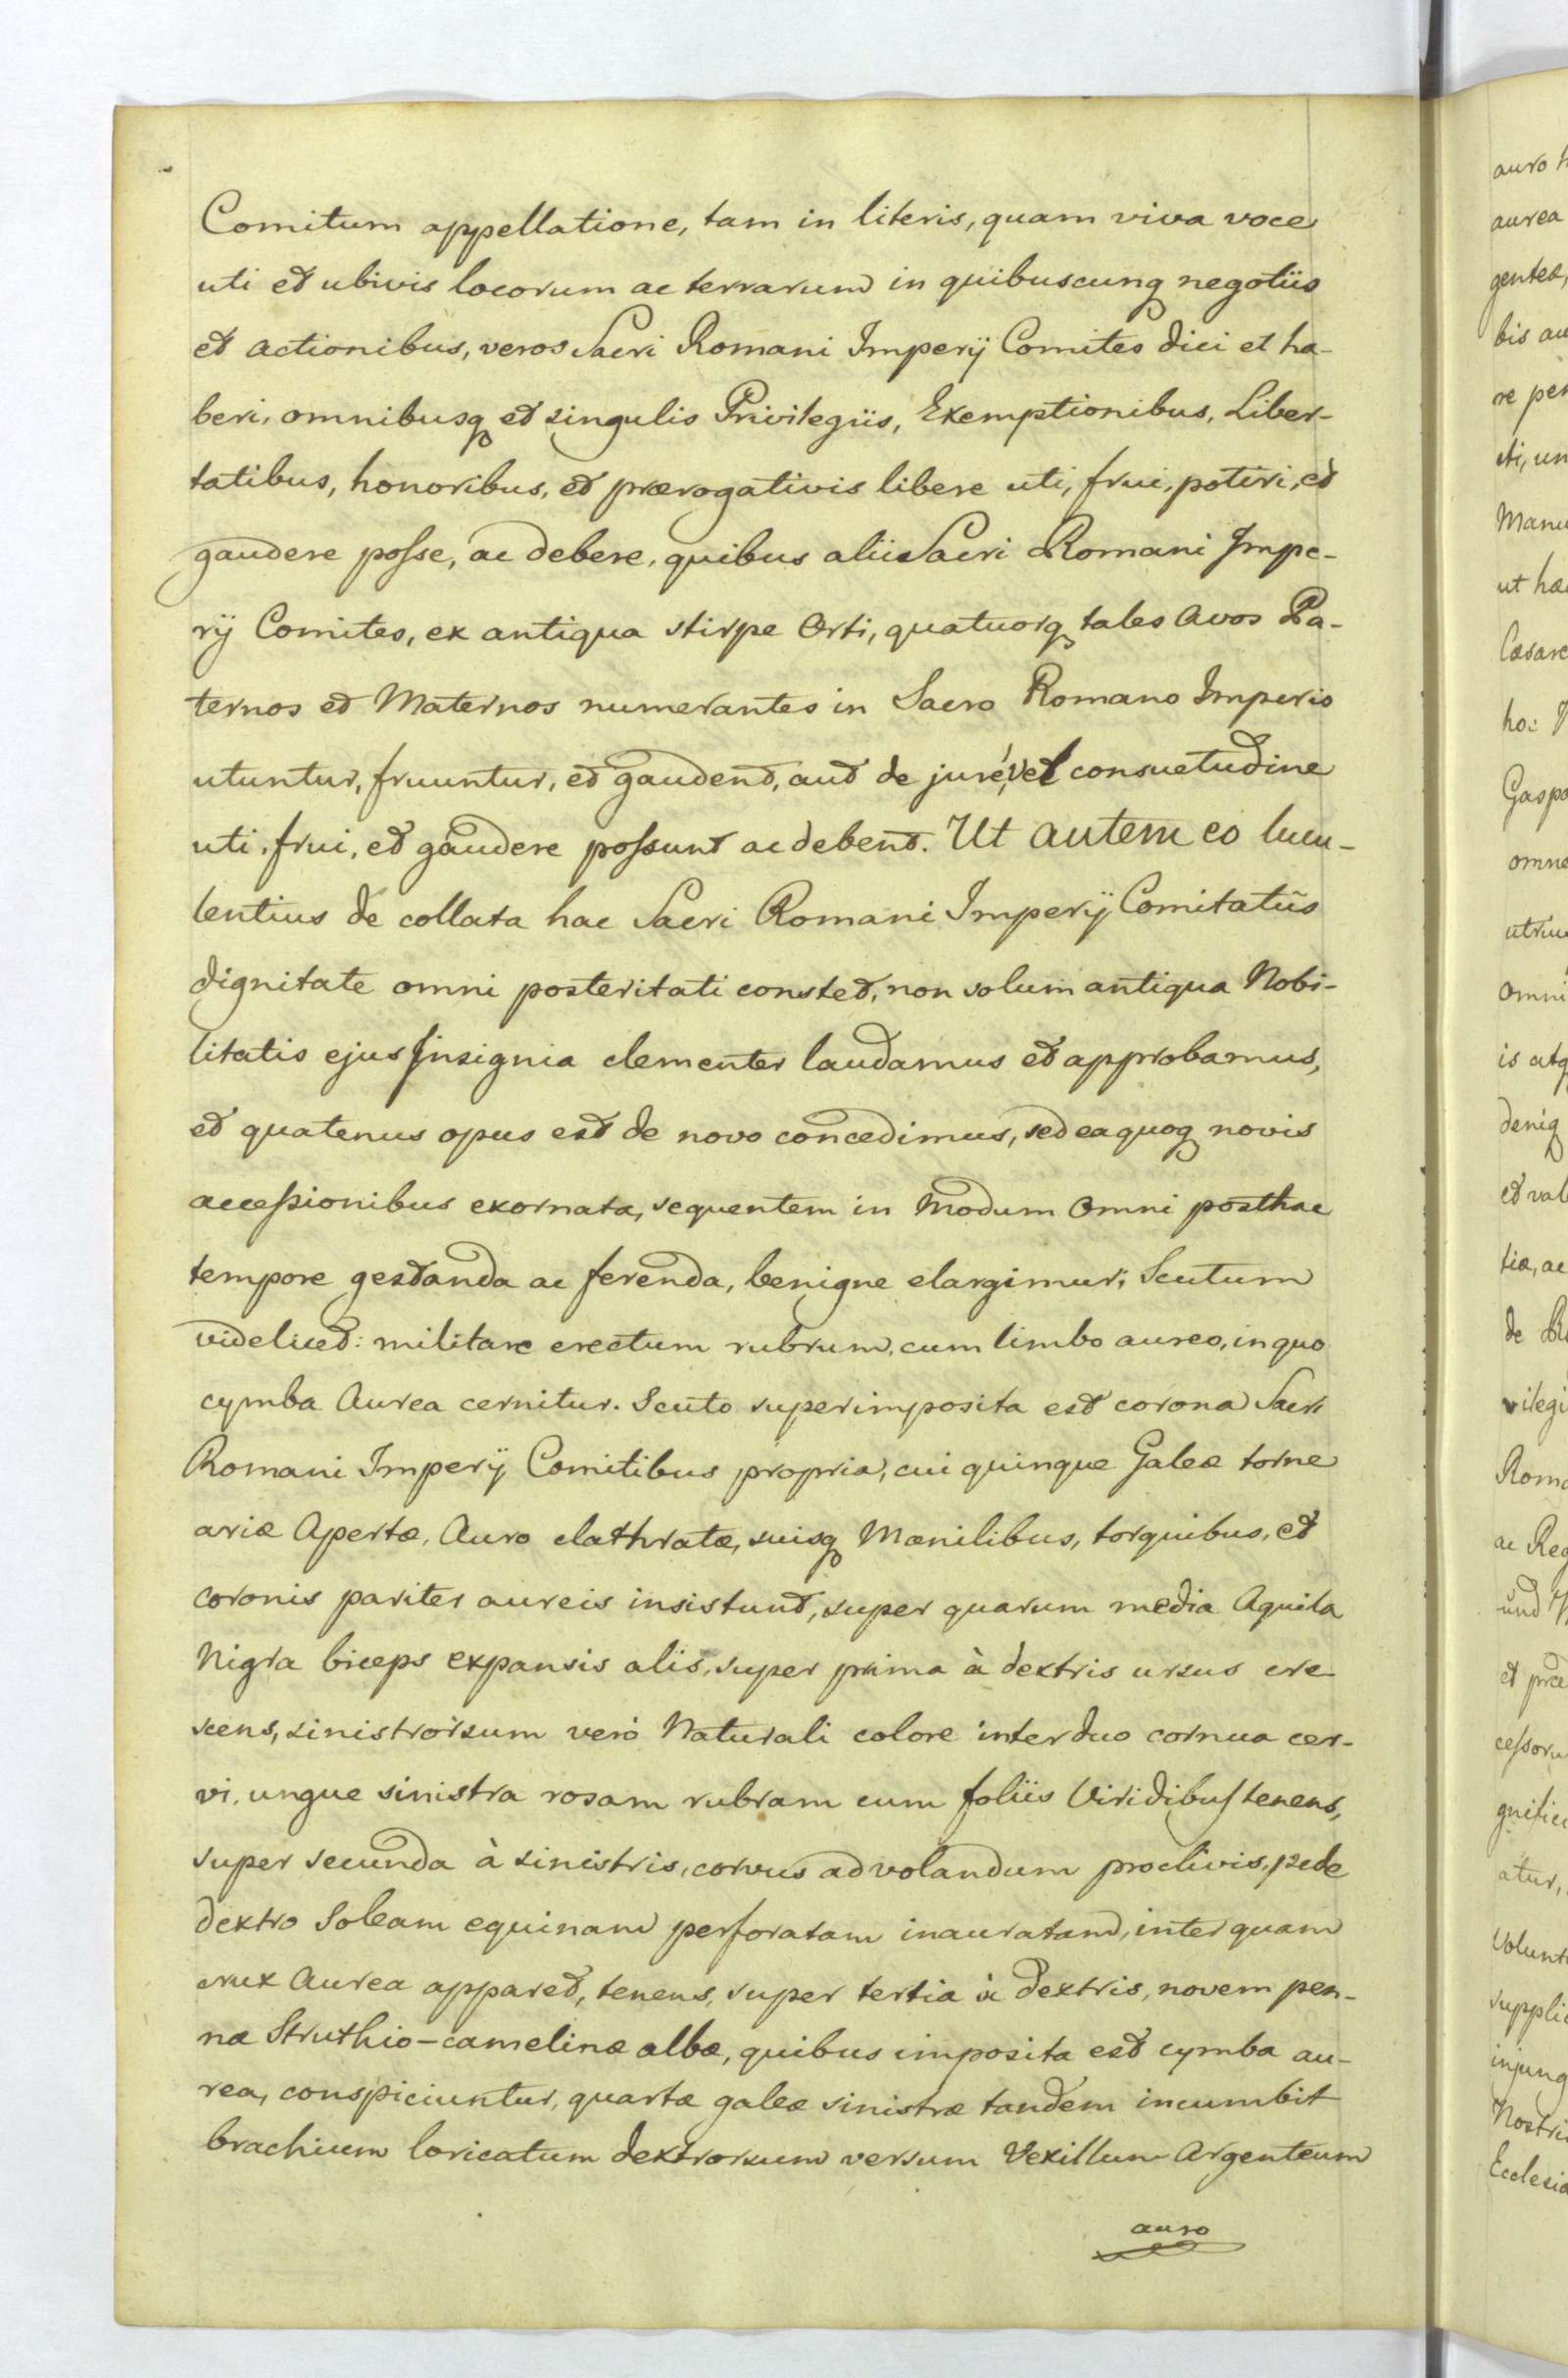 Comitum appellatione, tam in literis, quam viva voce
uti et ubivis locorum ac terrarum in quibuscunq negotiis
et actionibus, veros Sacri Romani Imperij Comites dici et ha-
beri, omnibusq et singulis Privilegiis, Exemptionibus, Liber-
tatibus, honoribus, et prærogativis libere uti, frui, potiri, et
gaudere posse, ac debere, quibus alii Sacri Romani Impe-
rij Comites, ex antiqua stirpe Orti, quatuorq tales Avos Pa-
ternos et Maternos numerantes in Sacro Romano Imperio
utuntur, fruuntur, et gaudent, aut de jure, vel consuetudine
uti, frui, et gaudere possunt ac debent. Ut autem eo lucu-
lentius de collata hac Sacri Romani Imperij Comitatûs
dignitate omni posteritati constet, non solum antiqua Nobi-
litatis ejus Insignia clementer laudamus et approbamus,
et quatenus opus est de novo concedimus, sed ea quoq novis
accessionibus exornata, sequentem in Modum Omni posthac
tempore gestanda ac ferenda, benigne elargimur; Scutum
videlicet: militare erectum rubrum, cum limbo aureo, in quo
cymba Aurea cernitur. Scuto superimposita est corona Sacri
Romani Imperij Comitibus propria, cui quinque Galeæ torne
ariæ Apertæ, Auro clathratæ, suisq Mænilibus, torquibus, et
coronis pariter aureis insistunt, super quarum media Aquila
Nigra biceps expansis alis, super prima à dextris ursus cre-
scens, sinistrorsum verò Naturali colore inter duo cornua cer-
vi, ungue sinistra rosam rubram cum foliis Viridibus tenens,
super secunda à sinistris, corvus ad volandum proclivis, pede
dextro Soleam equinam perforatam inauratam, inter quam
crux Aurea apparet, tenens, super tertia à dextris, novem pen-
næ Struthio-camelinæ albæ, quibus imposita est cymba au-
rea, conspiciuntur, quartæ galeæ sinistræ tandem incumbit
brachium loricatum dextrorsum versum Vexillum Argenteum
auro
auro
aurea
genteæ,
bis au
re per
sti, un
Manu
ut hæ
Cæsare
Gaspa
omne
utriu
omni
is atq
deniq
et val
tiæ, ac
de
vilegi
Roma
ac Reg
und
et præ
cessoru
gnific
atur,
Volunt
supplic
injung
Nostri
Ecclesia